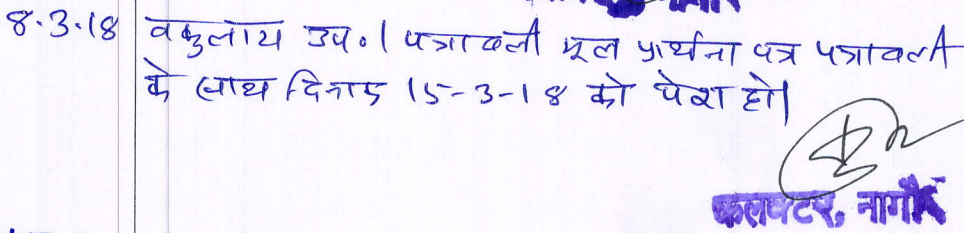 8.3.18 वकुलाय उप०। पत्रावली मूल प्रार्थना पत्र पत्रावली
के साथ दिनांक 15-3-18 को पेश हो।
कलक्टर, नागौर